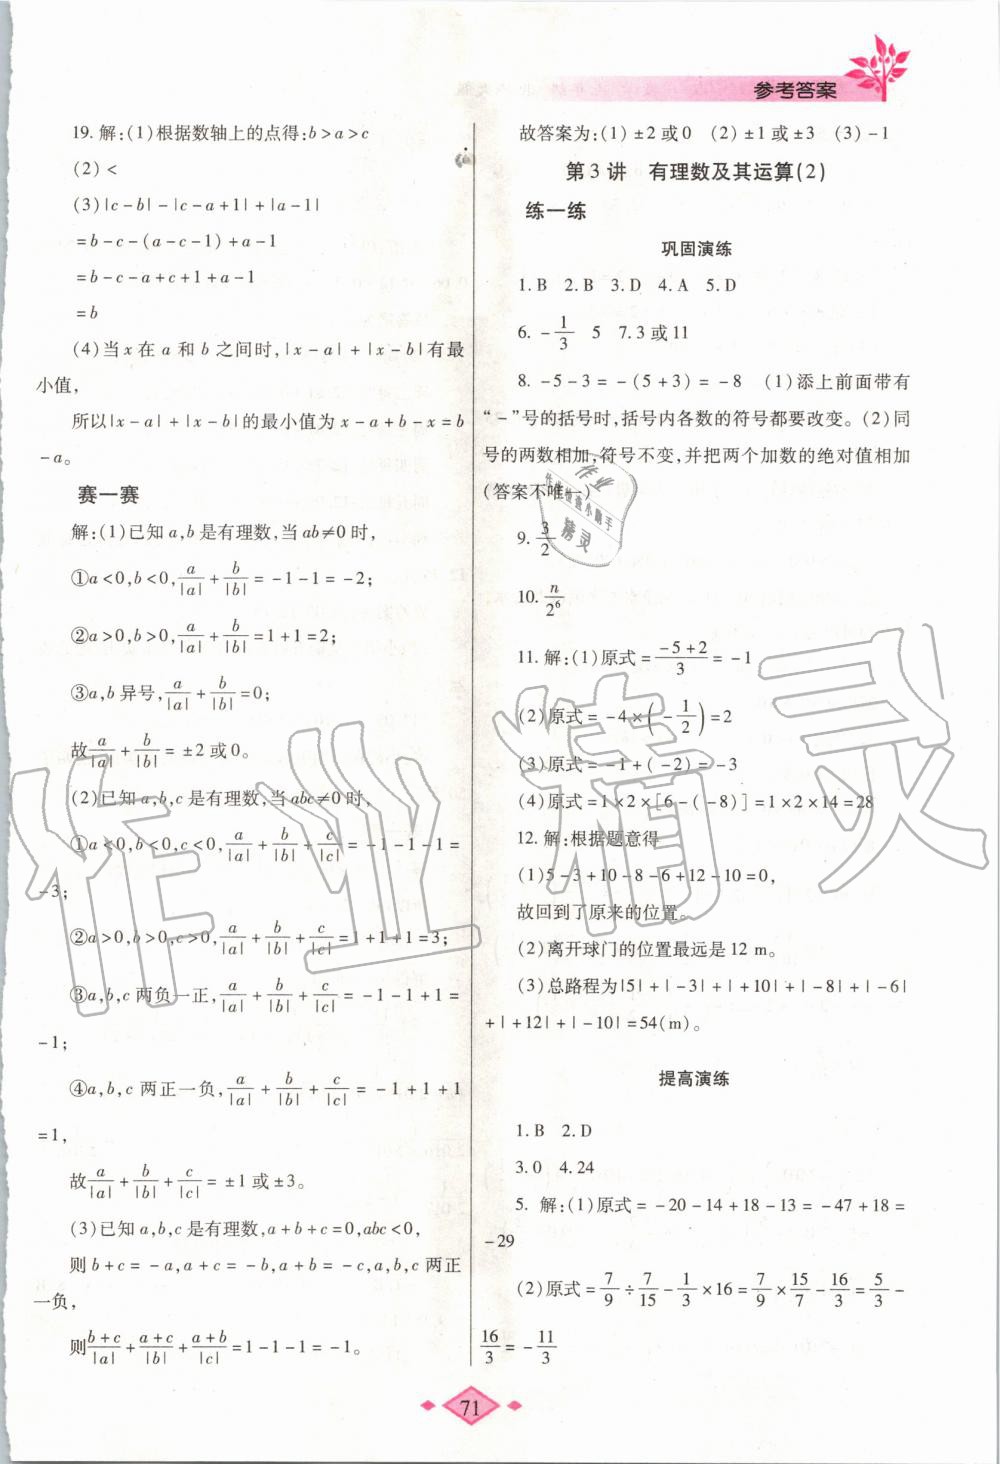 参考答案
19. 解:(1)根据数轴上的点得:b>a>c
(2)<
(3)|c-b|-|c-a+1|+|a-1|
=b-c-(a-c-1)+a-1
=b-c-a+c+1+a-1
=b
(4)当 x 在 a 和 b 之间时,|x-a|+|x-b|有最
小值,
所以|x-a|+|x-b|的最小值为 x-a+b-x=b
-a。
赛一赛
解:(1)已知 a,b 是有理数,当 ab≠0 时,
①a<0,b<0,a/|a|+b/|b|=-1-1=-2;
②a>0,b>0,a/|a|+b/|b|=1+1=2;
③a,b 异号,a/|a|+b/|b|=0;
故a/|a|+b/|b|=±2 或 0。
(2)已知 a,b,c 是有理数,当 abc≠0 时,
①a<0,b<0,c<0,a/|a|+b/|b|+c/|c|=-1-1-1=
-3;
②a>0,b>0,c>0,a/|a|+b/|b|+c/|c|=1+1+1=3;
③a,b,c 两负一正,a/|a|+b/|b|+c/|c|=-1-1+1=
-1;
④a,b,c 两正一负,a/|a|+b/|b|+c/|c|=-1+1+1
=1,
故a/|a|+b/|b|+c/|c|=±1 或±3。
(3)已知 a,b,c 是有理数,a+b+c=0,abc<0,
则 b+c=-a,a+c=-b,a+b=-c,a,b,c 两正
一负,
则(b+c)/|a|+(a+c)/|b|+(a+b)/|c|=1-1-1=-1。
故答案为:(1)±2 或 0 (2)±1 或±3 (3)-1
第 3 讲 有理数及其运算(2)
练一练
巩固演练
1. B 2. B 3. D 4. A 5. D
6. -1/3 5 7. 3 或 11
8. -5-3=-(5+3)=-8 (1)添上前面带有
“-”号的括号时,括号内各数的符号都要改变。(2)同
号的两数相加,符号不变,并把两个加数的绝对值相加
(答案不唯一)
9. 3/2
10. n/2⁶
11. 解:(1)原式=(-5+2)/3=-1
(2)原式=-4×(-1/2)=2
(3)原式=-1+(-2)=-3
(4)原式=1×2×[6-(-8)]=1×2×14=28
12. 解:根据题意得
(1)5-3+10-8-6+12-10=0,
故回到了原来的位置。
(2)离开球门的位置最远是 12 m。
(3)总路程为|5|+|-3|+|+10|+|-8|+|-6|
+|+12|+|-10|=54(m)。
提高演练
1. B 2. D
3. 0 4. 24
5. 解:(1)原式=-20-14+18-13=-47+18=
-29
(2)原式=7/9÷7/15-1/3×16=7/9×15/7-16/3=5/3-
16/3=-11/3
71
作业精灵
作业
精灵